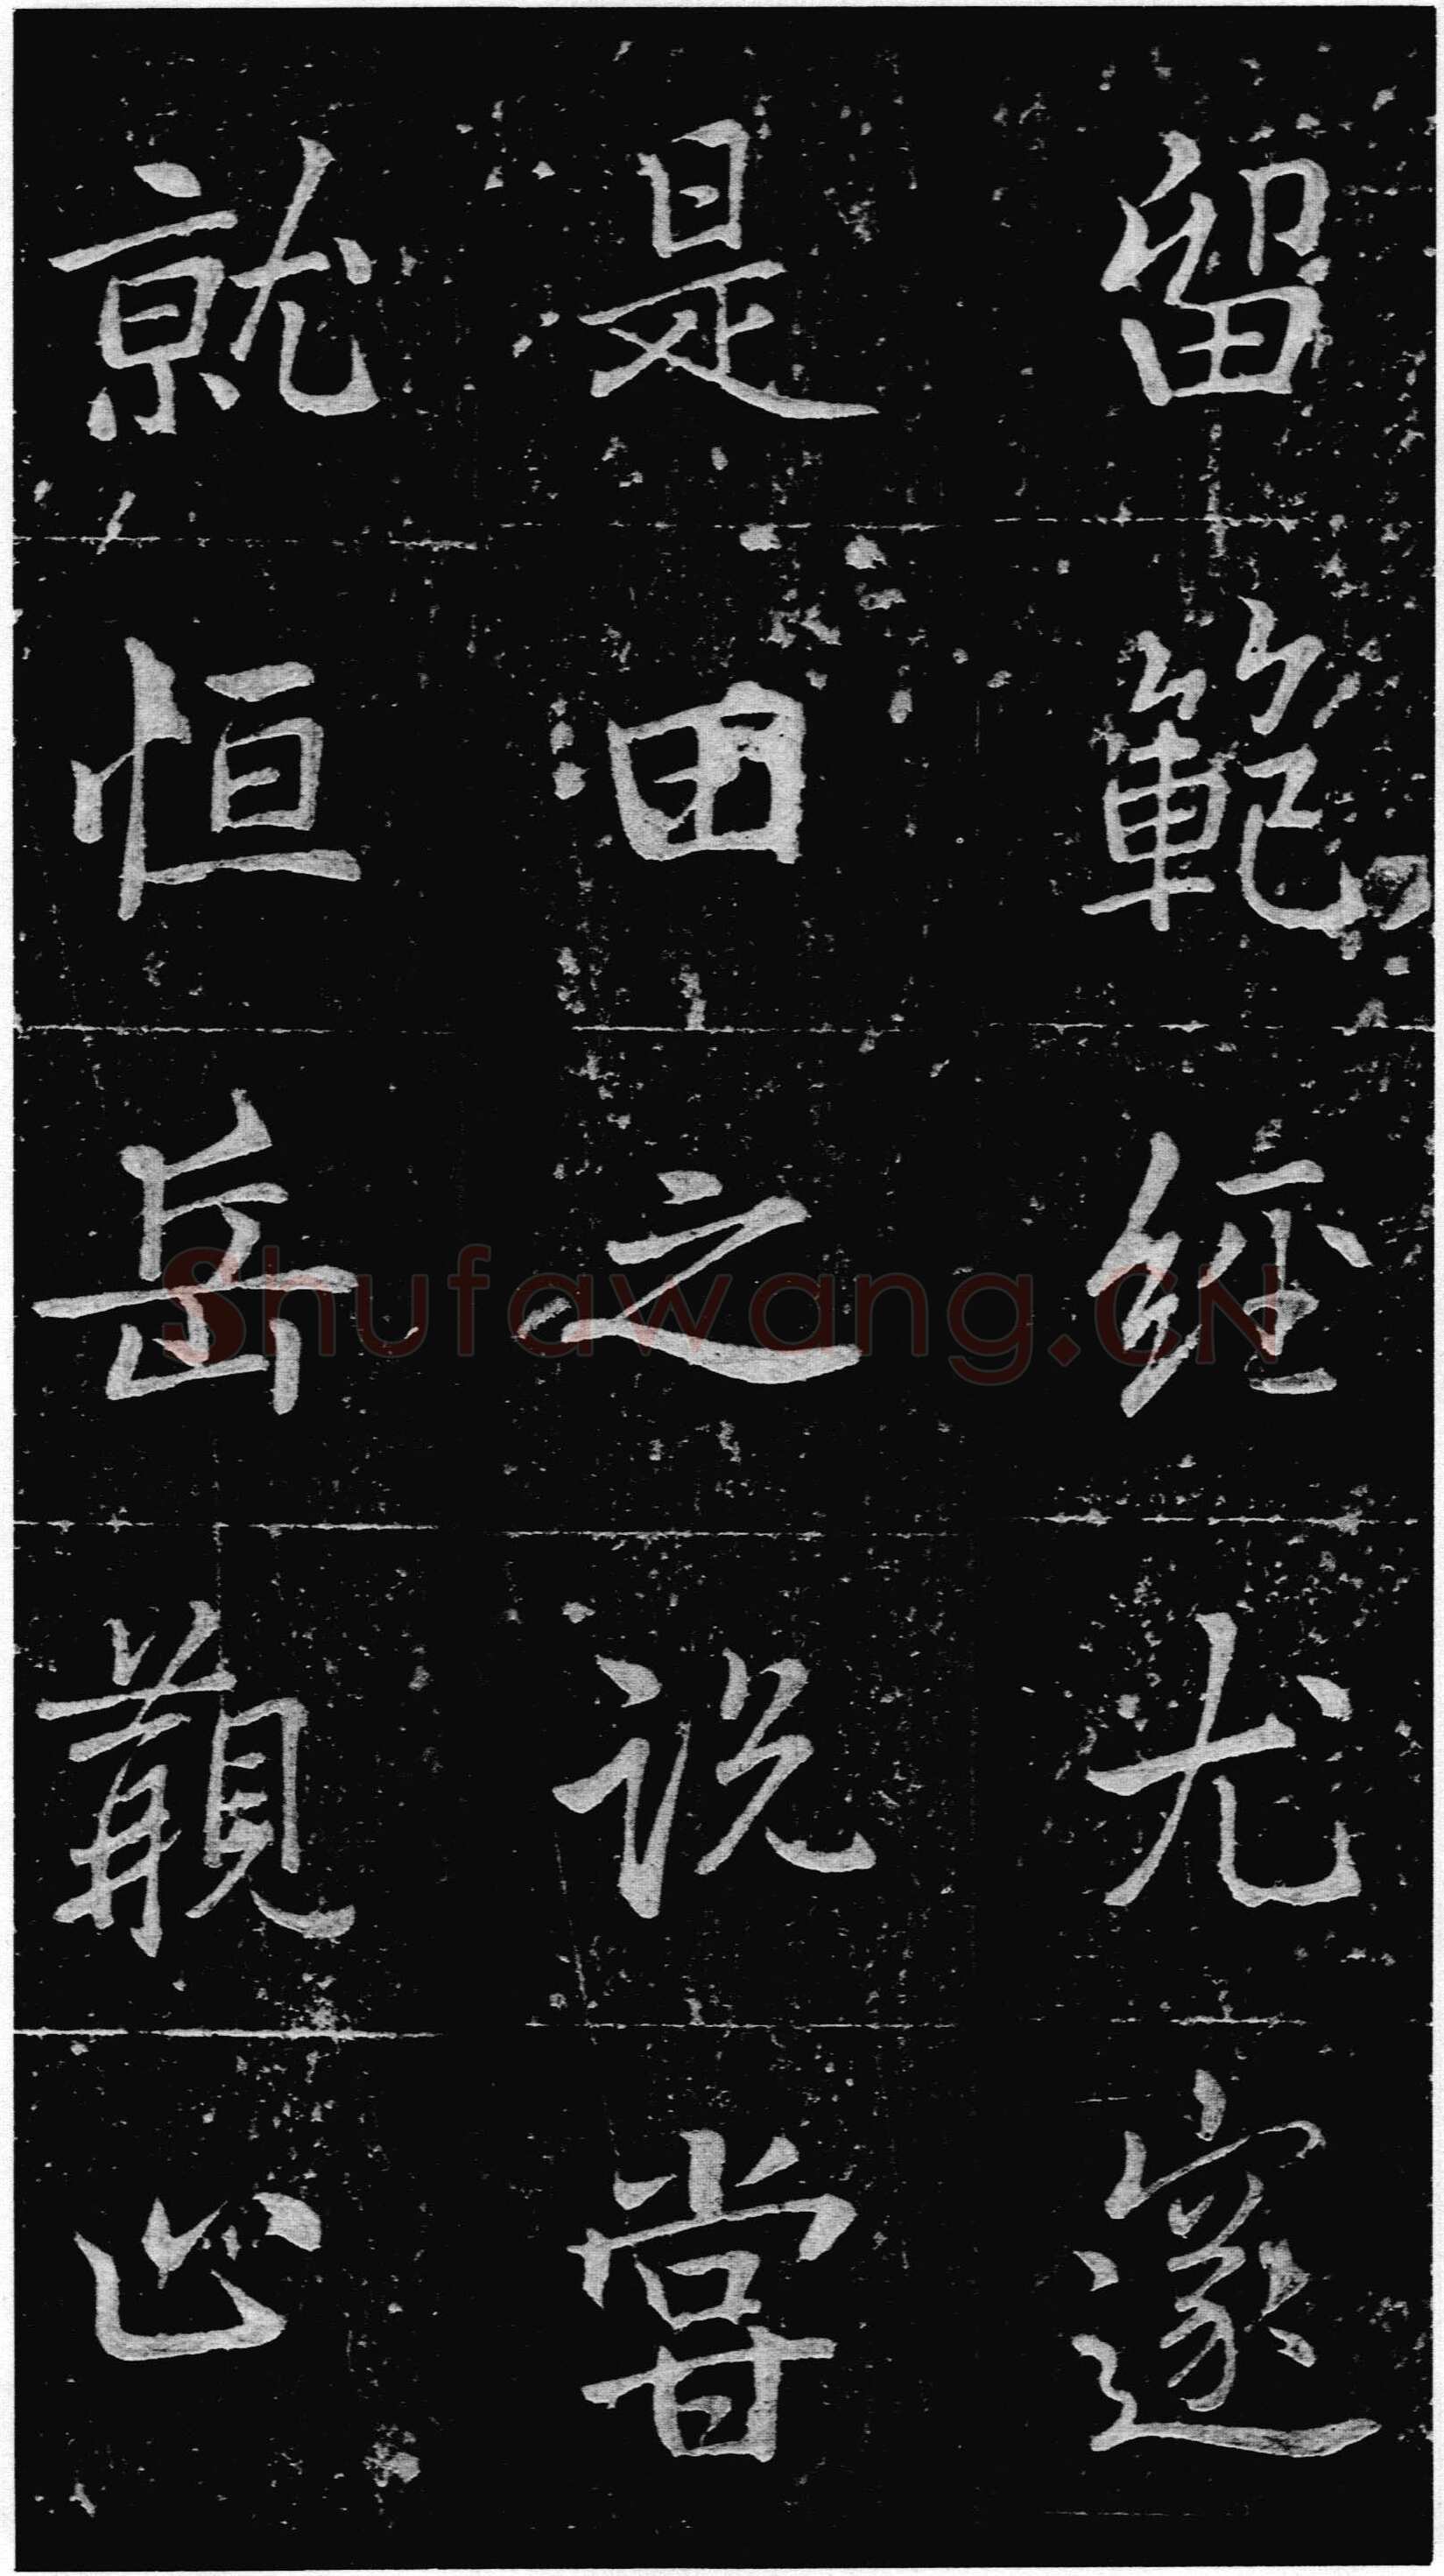 留範經尤邃
是田之說嘗
就恒岳觀心
Shufawang.CN